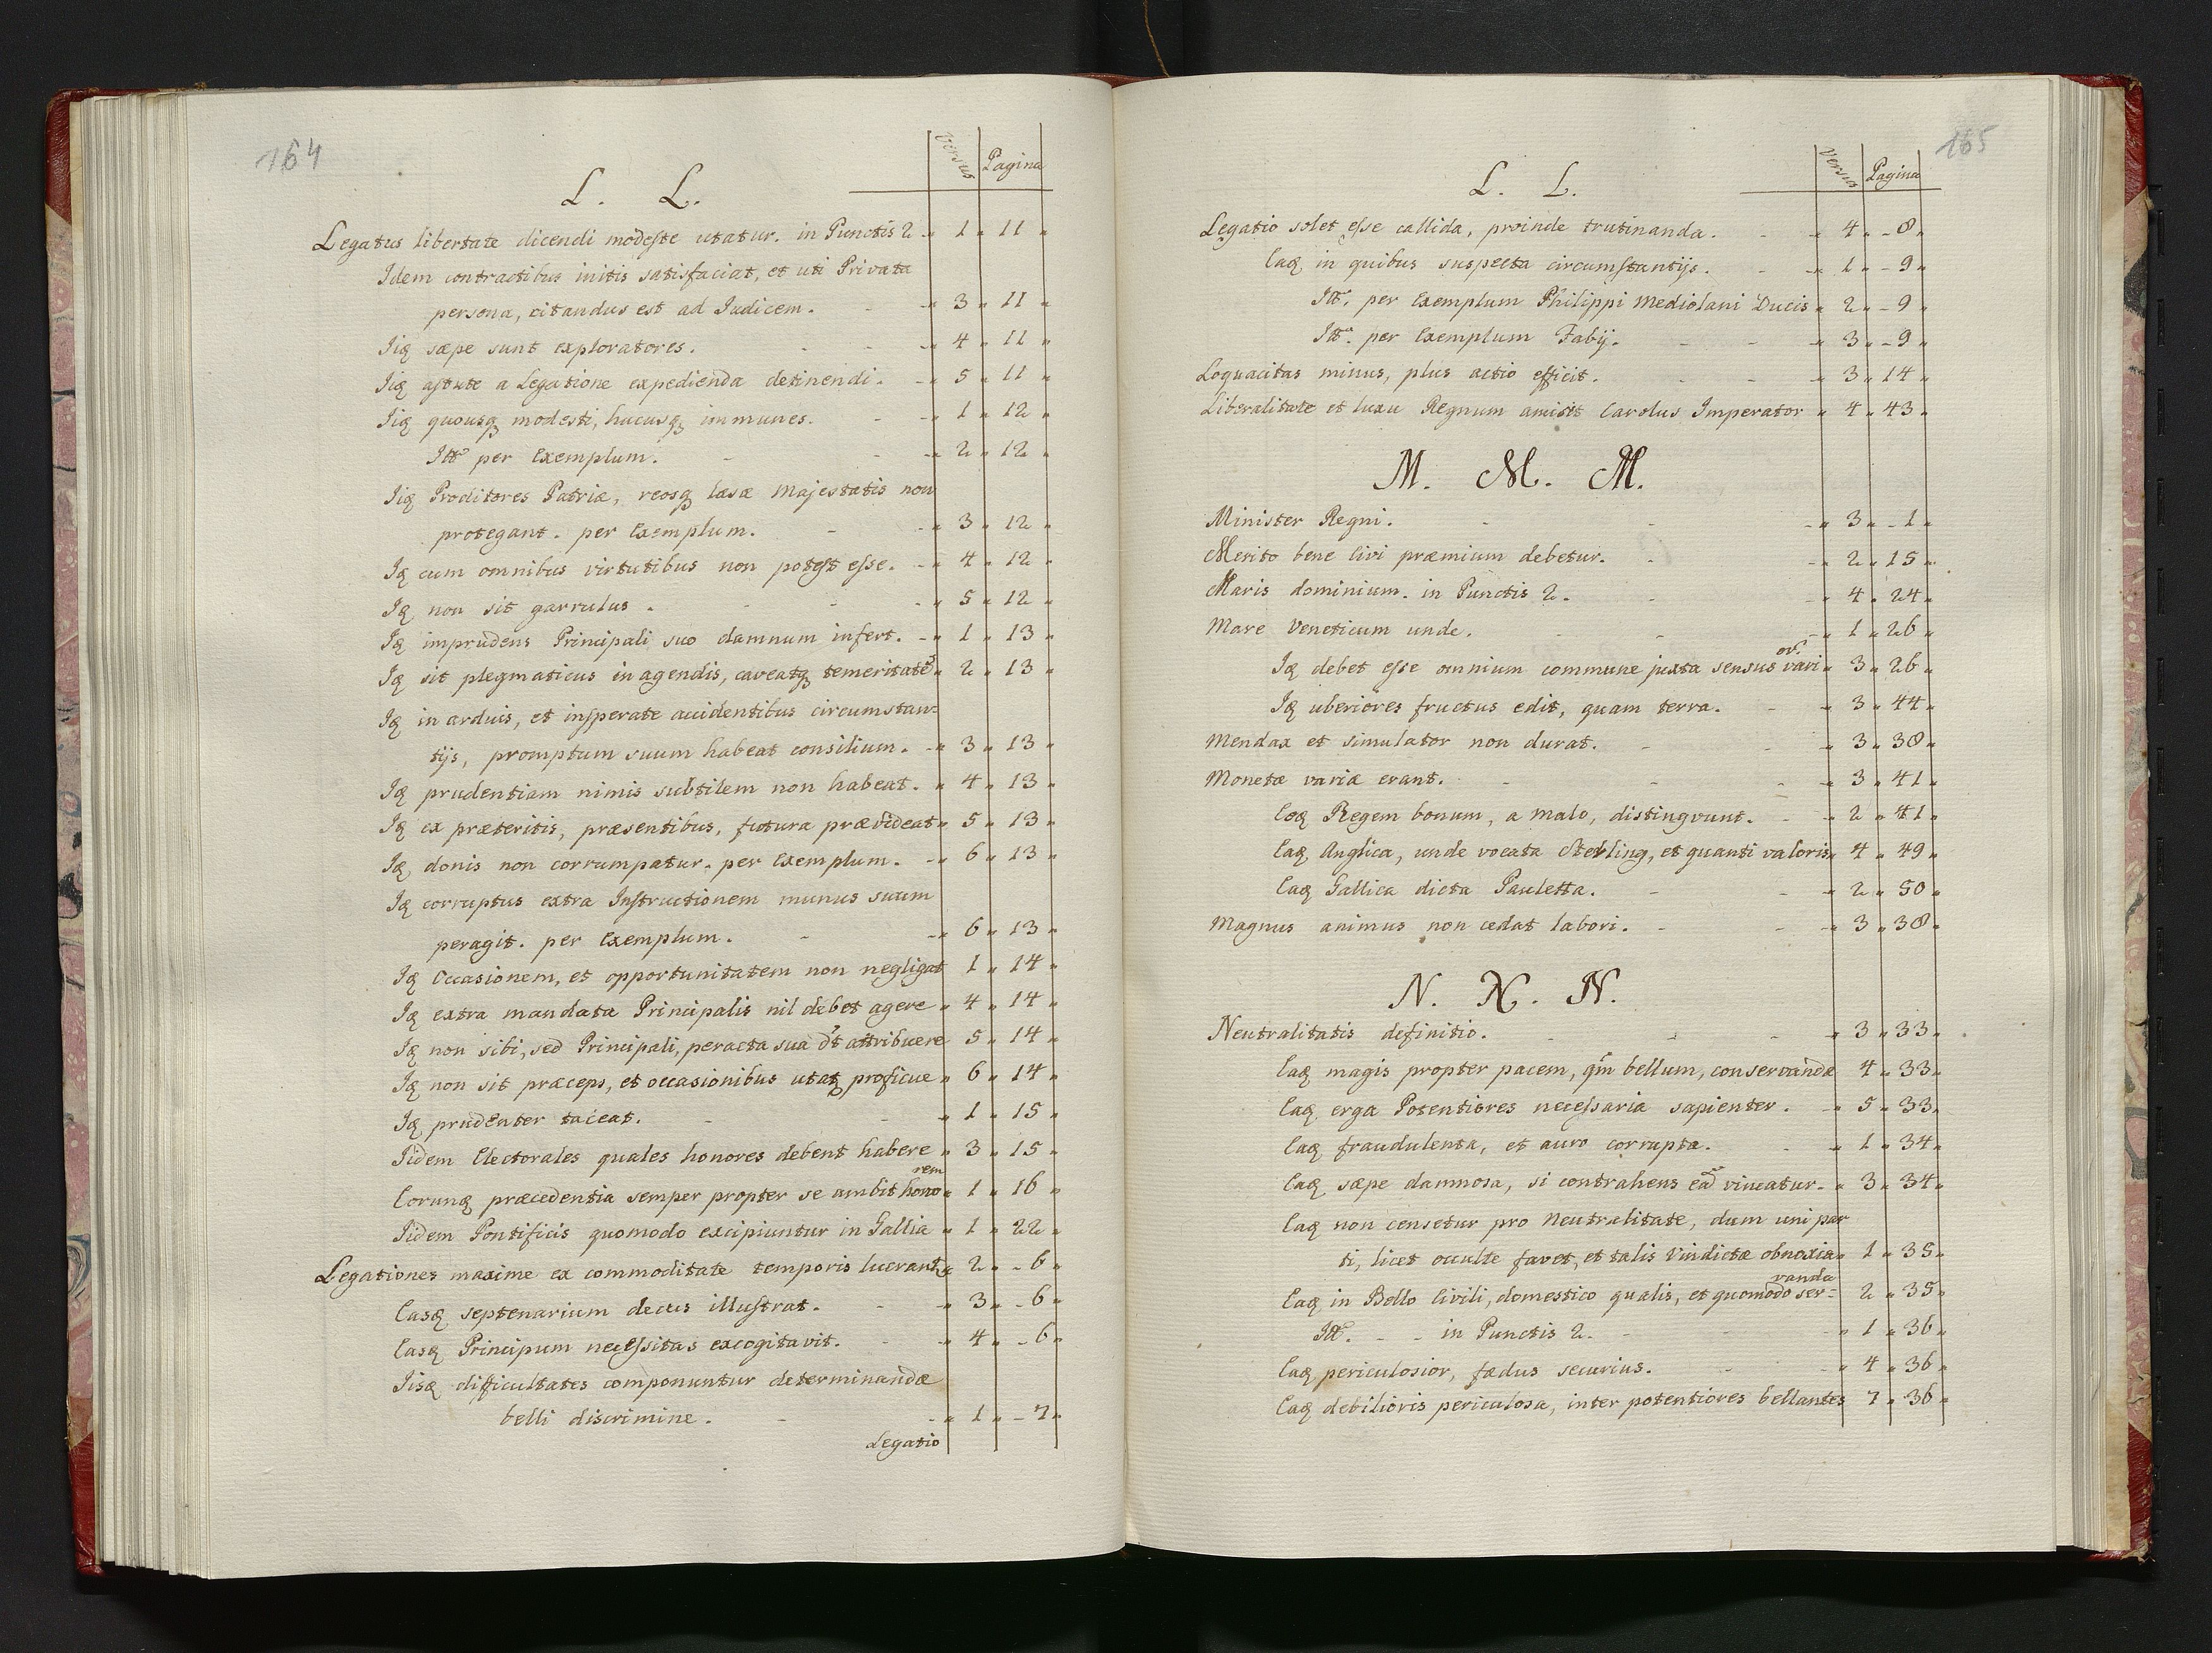 164
Versus Pagina
L. L.
Legatus libertate dicendi modeste utatur. in Punctis 2 - " 1 " 11 "
Idem contractibus initis satisfaciat, et uti Privata
persona, citandus est ad Iudicem. - " 3 " 11 "
Iiq sæpe sunt exploratores. - - " 4 " 11 "
Iiq astute a Legatione expedienda detinendi. - " 5 " 11 "
Iiq quousq modesti, hucusq immunes. - " 1 " 12 "
Itt per Exemplum. - - " 2 " 12 "
Iiq Proditores Patriæ, reosq læsæ Majestatis non
protegant. per Exemplum. - " 3 " 12 "
Iq cum omnibus virtutibus non potest esse. - " 4 " 12 "
Iq non sit garrulus. - - " 5 " 12 "
Iq imprudens Principali suo damnum infert. - " 1 " 13 "
Iq sit plegmaticus in agendis, caveatq temeritatē " 2 " 13 "
Iq in arduis, et insperate accidentibus circumstan=
tijs, promptum suum habeat consilium. - " 3 " 13 "
Iq prudentiam nimis subtilem non habeat. " 4 " 13 "
Iq ex præteritis, præsentibus, futura prævideat " 5 " 13 "
Iq donis non corrumpatur. per Exemplum. - " 6 " 13 "
Iq corruptus extra Instructionem munus suum
peragit. per Exemplum. - " 6 " 13 "
Iq Occasionem, et opportunitatem non negligat 1 " 14 "
Iq extra mandata Principalis nil debet agere " 4 " 14 "
Iq non sibi, sed Principali, peracta sua dt attribuere 5 " 14 "
Iq non sit præceps, et occasionibus utatq proficue " 6 " 14 "
Iq prudenter taceat. - - " 1 " 15 "
Iidem Electorales quales honores debent habere " 3 " 15 "
Eorunq præcedentia semper propter se ambit honorem " 1 " 16 "
Iidem Pontificis quomodo excipiuntur in Gallia " 1 " 22 "
Legationes maxime ex commoditate temporis lucrantq " 2 " - 6 "
Easq septenarium decus illustrat. - " 3 " - 6 "
Easq Principum necessitas excogitavit. - " 4 " - 6 "
Iisq difficultates componuntur determinandæ
belli discrimine. - - " 1 " - 7 "
Legatio
165
Versus Pagina
L. L.
Legatio solet esse callida, proinde trutinanda. - " 4 " - 8 "
Eaq in quibus suspecta circumstantijs. - " 1 " - 9 "
Itt. per Exemplum Philippi Mediolani Ducis " 2 " - 9 "
Itt. per Exemplum Fabij. - - " 3 " - 9 "
Loquacitas minus, plus actio efficit. - - " 3 " 14 "
Liberalitate et luxu Regnum amisit Carolus Imperator " 4 " 43 "
M. M. M.
Minister Regni. - - " 3 " - 1 "
Merito bene Civi præmium debetur. - " 2 " 15 "
Maris dominium. in Punctis 2. - " 4 " 24 "
Mare Veneticum unde. - - " 1 " 26 "
Iq debet esse omnium commune juxta sensus variōr. " 3 " 26 "
Iq uberiores fructus edit, quam terra. - " 3 " 44 "
Mendax et simulator non durat. - - " 3 " 38 "
Monetæ variæ erant. - - " 3 " 41 "
Eæq Regem bonum, a malo, distingvunt. - " 2 " 41 "
Eaq Anglica, unde vocata Sterling, et quanti valoris " 4 " 49 "
Eaq Gallica dicta Pauletta. - - " 2 " 50 "
Magnus animus non cedat labori. - - " 3 " 38 "
N. N. N.
Neutralitatis definitio. - - " 3 " 33 "
Eaq magis propter pacem, qm̄ bellum, conservanda 4 " 33 "
Eaq erga Potentiores necessaria sapienter. - " 5 " 33 "
Eaq fraudulenta, et auro corrupta. - " 1 " 34 "
Eaq sæpe damnosa, si contrahens eā vincatur. " 3 " 34 "
Eaq non censetur pro Neutralitate, dum uni par
ti, licet occulte favet, et talis Vindictæ obnoxia " 1 " 35 "
Eaq in Bello Civili, domestico qualis, et quomodo ser=vanda 2 " 35 "
Itt. - - in Punctis 2. - - " 1 " 36 "
Eaq periculosior, fœdus securius. - - " 4 " 36 "
Eaq debilioris periculosa, inter potentiores bellantes 7 " 36 "